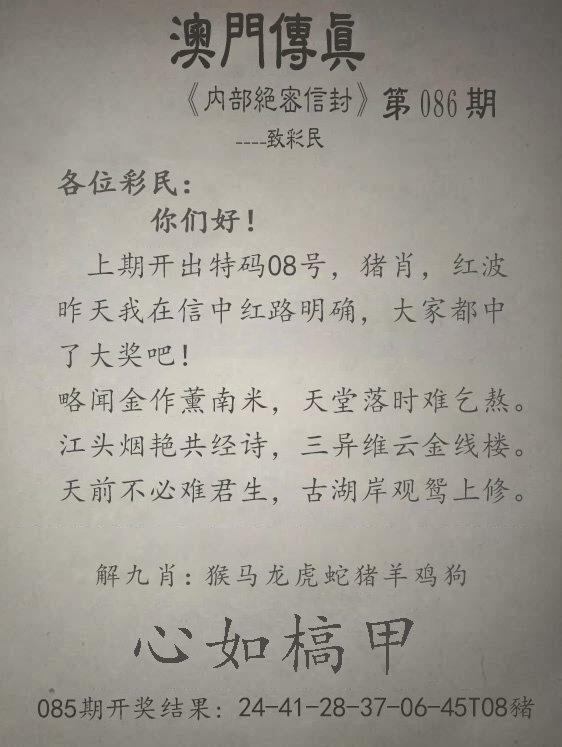 澳門傳眞
《内部絕密信封》第086期
----致彩民
各位彩民：
你们好！
上期开出特码08号，猪肖，红波
昨天我在信中红路明确，大家都中
了大奖吧！
略闻金作薰南米，天堂落时难乞熬。
江头烟艳共经诗，三异维云金线楼。
天前不必难君生，古湖岸观鸳上修。
解九肖：猴马龙虎蛇猪羊鸡狗
心如槁甲
085期开奖结果：24-41-28-37-06-45T08豬